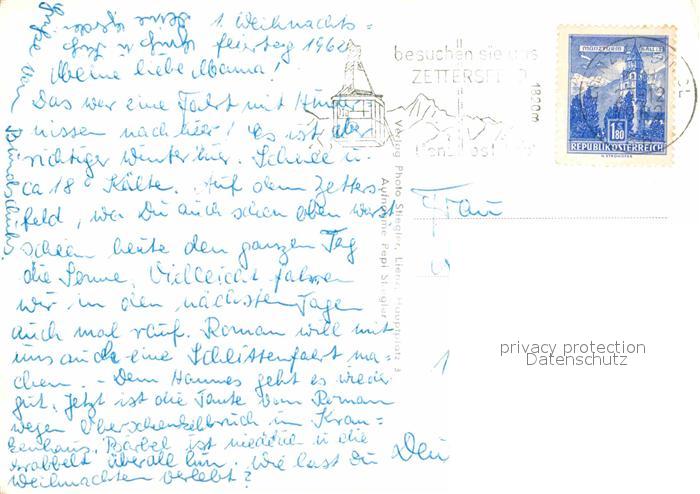 1. Weihnachts=
feiertag 196
Meine liebe Mama!
Das war eine Fahrt mit Hinder-
nissen nach hier! Es ist aber
richtiger Winter hier. Schnee u.
ca 18° Kälte. Auf dem Zetters-
feld, wo Du auch schon oben warst
schien heute den ganzen Tag
die Sonne. Vielleicht fahren
wir in den nächsten Tagen
auch mal rauf. Roman will mit
uns auch eine Schlittenfahrt ma-
chen. - Dem Hannes geht es wieder
gut. Jetzt ist die Tante vom Roman
wegen Oberschenkelbruch im Kran=
kenhaus. Bärbel ist niedlich u.
krabbelt überall hin. Wie hast Du
Weihnachten verlebt?
Grüße
besuchen sie uns
ZETTERSFELD
1800m
MÜNZTURM HALL
1.80
REPUBLIK ÖSTERREICH
Verlag Photo Stiegler, Lienz, Hauptplatz 3
Aufnahme Pepi Stiegler
Frau
privacy protection
Datenschutz